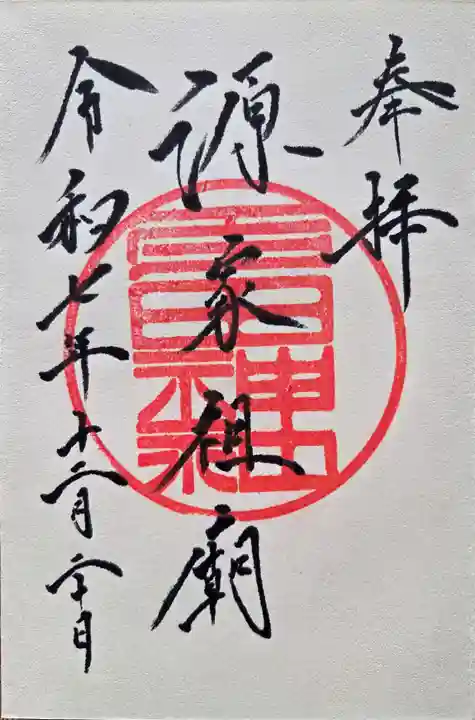 奉拝
源家祖廟
令和七年十二月二十日